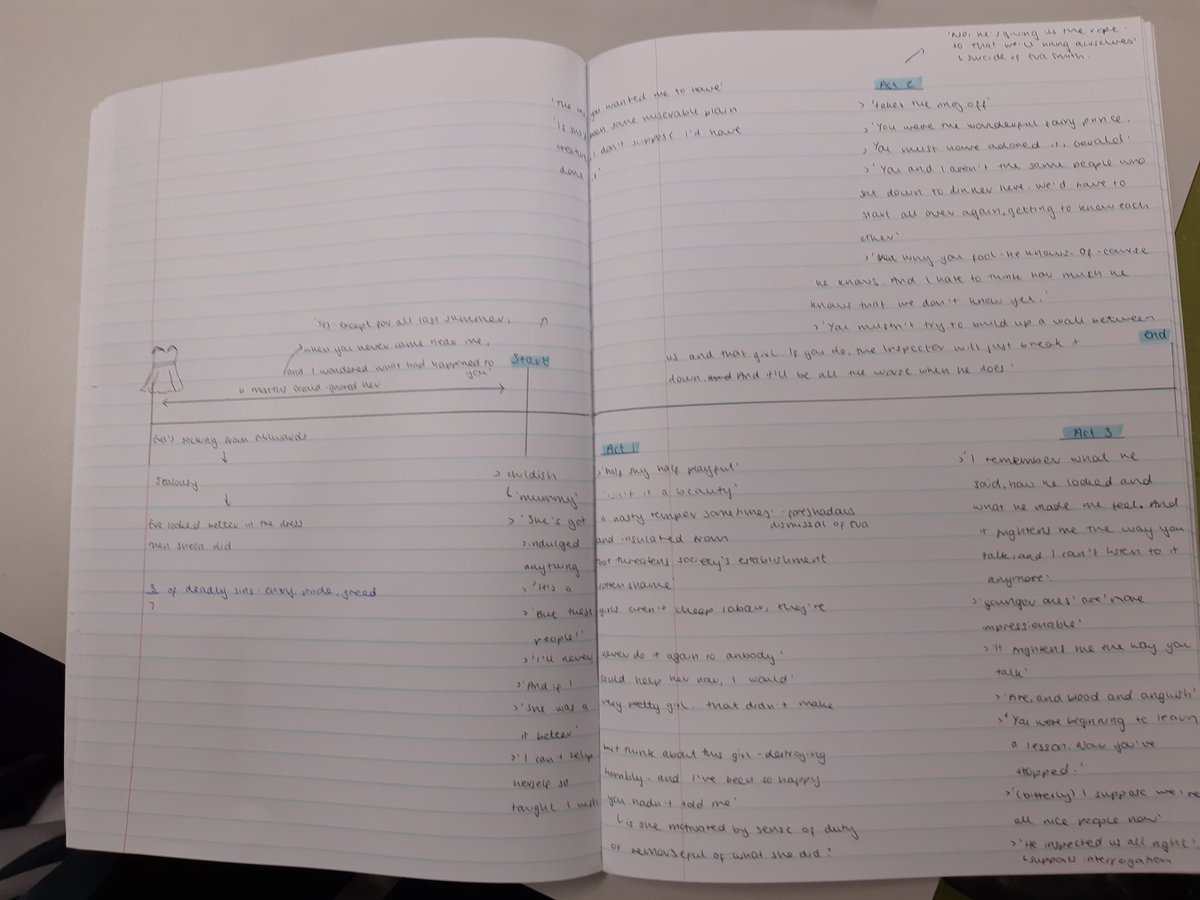 'No, he's giving us the rope -
so that we'll hang ourselves'
suicide of Eva Smith
'The ring you wanted me to have'
'If she'd been some miserable plain
creature, I don't suppose I'd have
done it'
Act 2
> 'takes the ring off'
> 'You were the wonderful fairy prince.
> You must have adored it, Gerald'
> 'You and I aren't the same people who
sat down to dinner here. We'd have to
start all over again, getting to know each
other'
> 'Why you fool - he knows. Of course
he knows. And I hate to think how much he
knows that we don't know yet.'
> 'You mustn't try to build up a wall between
us and that girl. If you do, the Inspector will just break it
down. And it'll be all the worse when he does'
end
'Yes - except for all last summer,
when you never came near me,
and I wondered what had happened to
you'
Start
6 months Gerald ignored her
Eva's sacking from Milwards
↓
Jealousy
↓
Eva looked better in the dress
than Sheila did
3/7 of deadly sins - envy, pride, greed
Act 1
> childish
'mummy'
> 'half my half playful'
'isn't it a beauty'
> 'She's got a nasty temper sometimes' - foreshadows
dismissal of Eva
> indulged and insulated from
anything that threatens society's establishment
> 'It's a rotten shame
> 'But these girls aren't cheap labour, they're
people!'
> 'I'll never never do it again to anbody'
> 'And if I could help her now, I would'
> 'She was a very pretty girl. that didn't make
it better'
> 'I can't help but think about this girl - destroying
herself so horribly - and I've been so happy
tonight. I wish you hadn't told me'
is she motivated by sense of duty
or remorseful of what she did?
Act 3
> 'I remember what he
said, how he looked and
what he made me feel. And
it frightens me the way you
talk, and I can't listen to it
anymore'.
> 'younger ones' are 'more
impressionable'
> 'It frightens me the way you
talk'
> 'Fire, and blood and anguish'
> 'You were beginning to learn
a lesson. Now you've
stopped.'
> '(bitterly) I suppose we're
all nice people now'
> 'He inspected us all right'.
supports interrogation